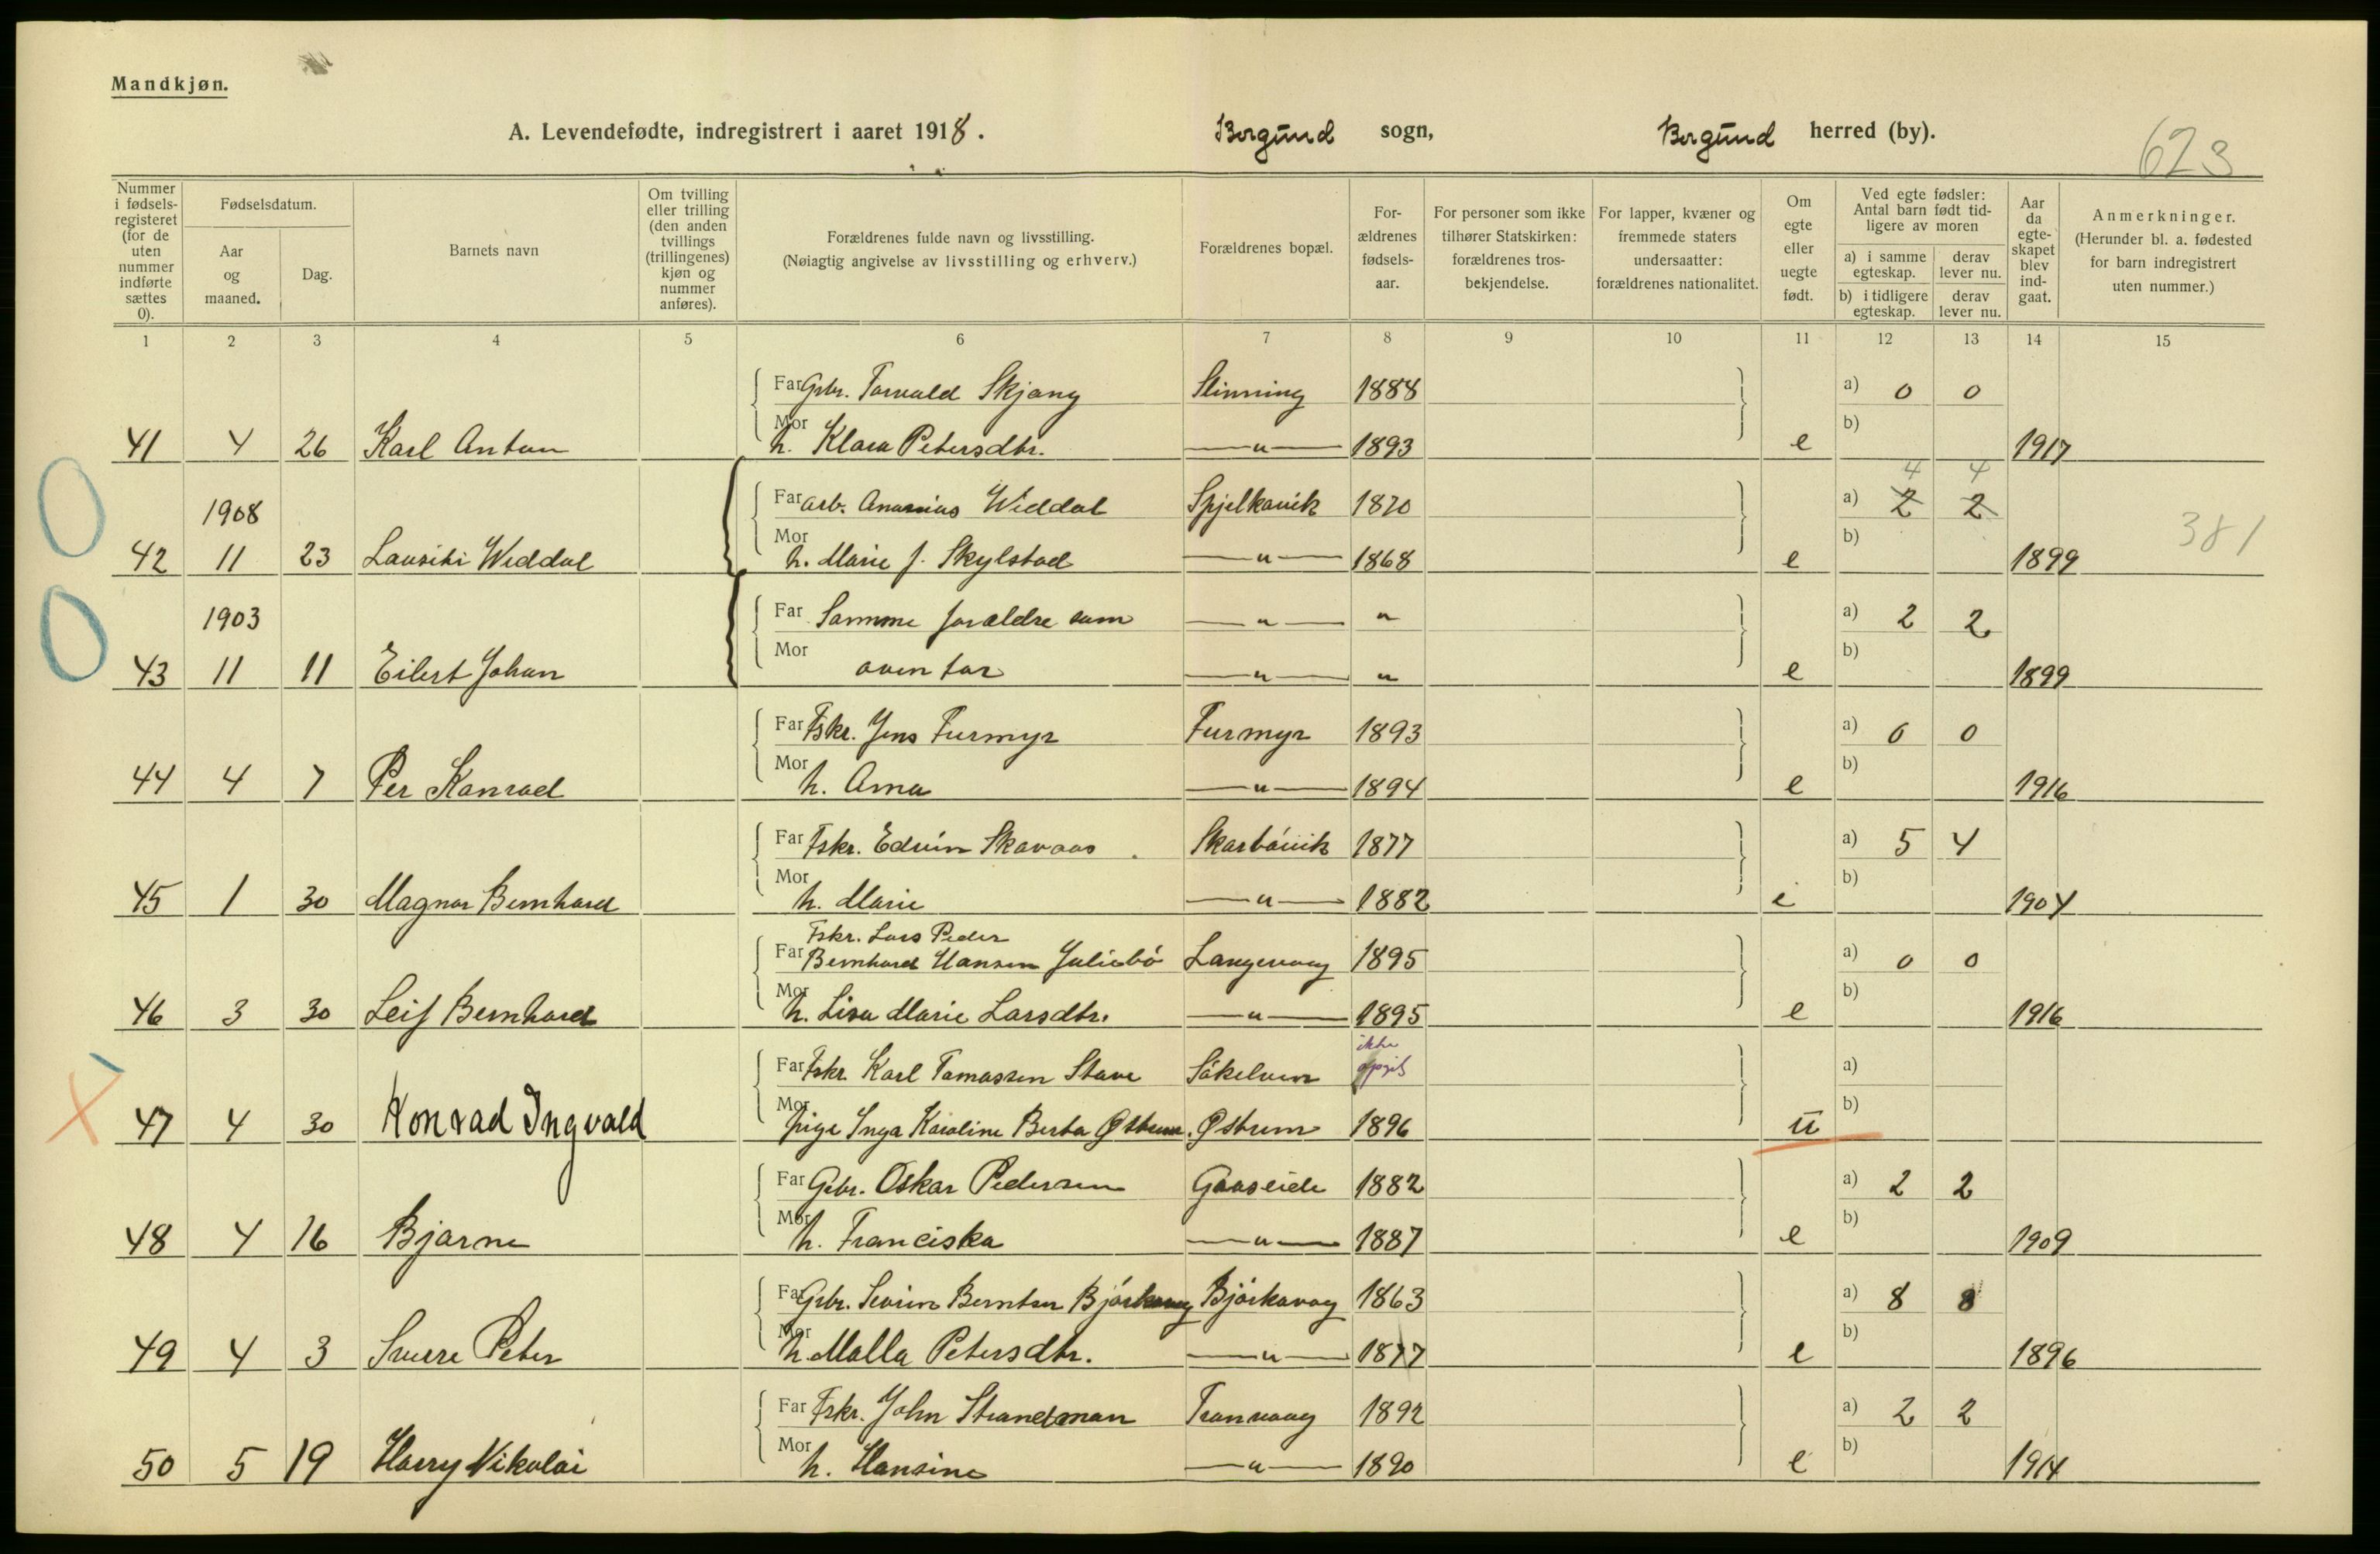 Mandkjøn.
A. Levendefødte, indregistrert i aaret 1918. Borgund sogn, Borgund herred (by). 623
Nummer i fødselsregisteret (for de uten nummer indførte sættes 0).
Fødselsdatum.
Aar og maaned.
Dag.
Barnets navn
Om tvilling eller trilling (den anden tvillings (trillingenes) kjøn og nummer anføres).
Forældrenes fulde navn og livsstilling. (Nøiagtig angivelse av livsstilling og erhverv.)
Forældrenes bopæl.
Forældrenes fødselsaar.
For personer som ikke tilhører Statskirken: forældrenes trosbekjendelse.
For lapper, kvæner og fremmede staters undersaatter: forældrenes nationalitet.
Om egte eller uegte født.
Ved egte fødsler: Antal barn født tidligere av moren
a) i samme egteskap. derav lever nu.
b) i tidligere egteskap. derav lever nu.
Aar da egteskapet blev indgaat.
Anmerkninger. (Herunder bl. a. fødested for barn indregistrert uten nummer.)
1 2 3 4 5 6 7 8 9 10 11 12 13 14 15
Far Gbr. Torvald Skjong Slinning 1888 a) 0 0
41 4 26 Karl Anton Mor h. Klara Petersdtr. — " — 1893 e b) 1917
4 4
1908 Far arb. Ananias Weddal Spjelkavik 1870 a) 2 2
42 11 23 Lauritz Weddal Mor h. Marie f. Skylstad — " — 1868 e b) 1899 381
1903 Far Samme forældre som — " — " a) 2 2
43 11 11 Eilert Johan Mor oven for — " — " e b) 1899
Far Fskr. Jens Furmyr Furmyr 1893 a) 0 0
44 4 7 Per Konrad Mor h. Anna — " — 1894 e b) 1916
Far Fskr. Edvin Skaraas Skarbövik 1877 a) 5 4
45 1 30 Magnar Bernhard Mor h. Marie — " — 1882 e b) 1904
Fskr. Lars Peder
Far Bernhard Hansen Juliebö Langevaag 1895 a) 0 0
46 3 30 Leif Bernhard Mor h. Lisa Marie Larsdtr. — " — 1895 e b) 1916
Far Fskr. Karl Tomassen Stave Sökelven ikke opgit a)
47 4 30 Konrad Ingvald Mor pige Inga Karoline Berta Østrem. Østrem 1896 u b)
Far Gbr. Oskar Pedersen Gaaseide 1882 a) 2 2
48 4 16 Bjarne Mor h. Franciska — " — 1887 e b) 1909
Far Gbr. Severin Berntsen Björkavag Björkavag 1863 a) 8 8
49 4 3 Sverre Peter Mor h. Malla Petersdtr. — " — 1877 e b) 1896
Far Fskr. John Strandman Tranvaag 1892 a) 2 2
50 5 19 Harry Nikolai Mor h. Hansine — " — 1890 e b) 1914